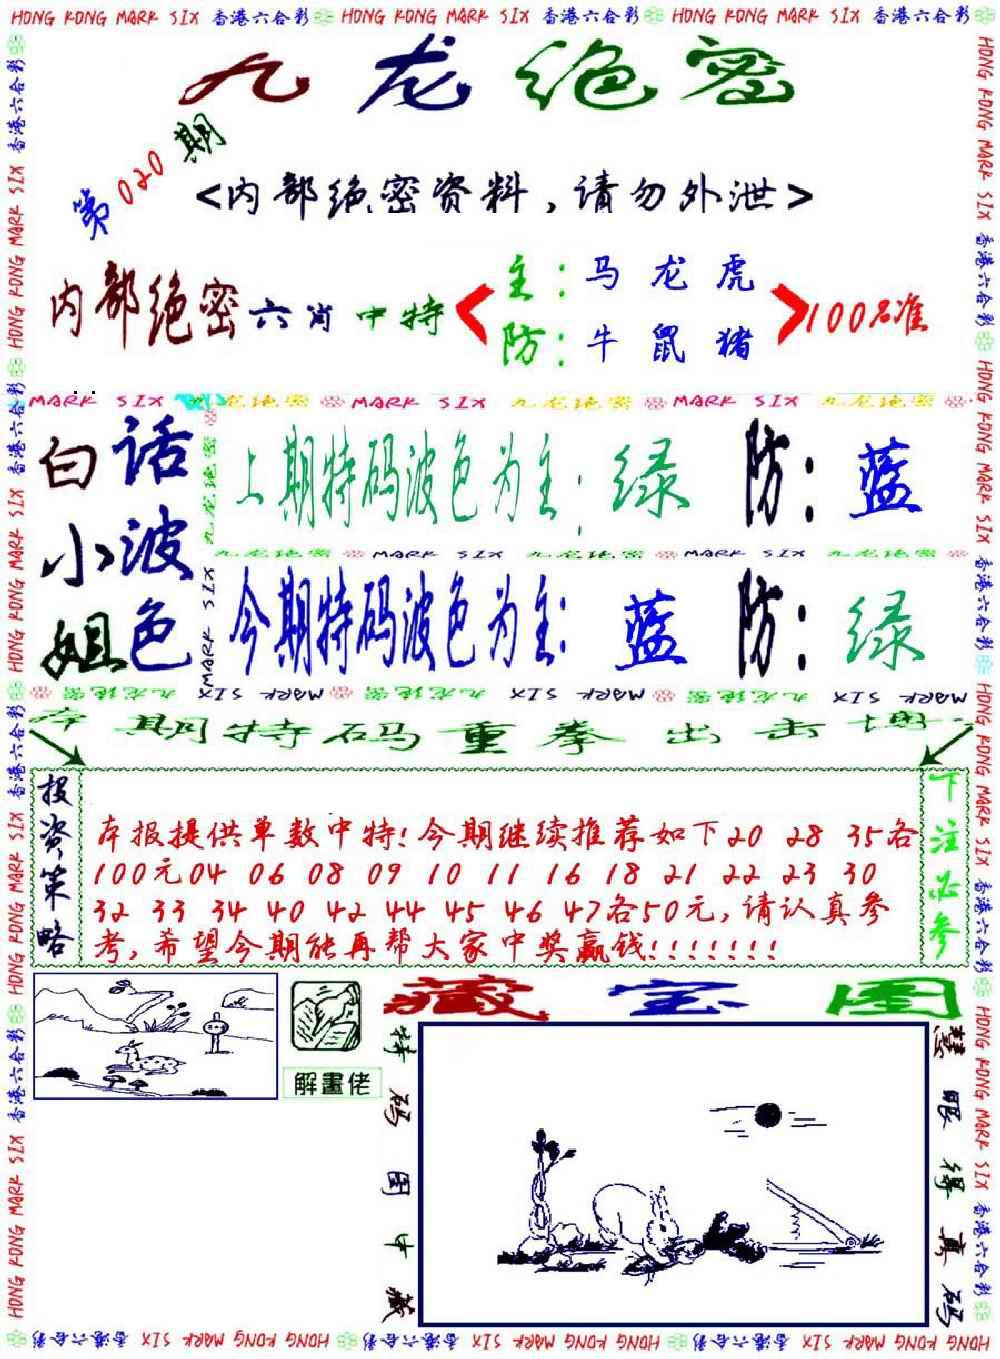 HONG KONG MARK SIX 香港六合彩 HONG KONG MARK SIX 香港六合彩 HONG KONG MARK SIX 香港六合彩
九龙绝密
第020期
<内部绝密资料,请勿外泄>
内部绝密六肖中特
主:马 龙 虎
防:牛 鼠 猪
100%准
MARK SIX 九龙绝密 MARK SIX 九龙绝密 MARK SIX 九龙绝密
白小姐
话波色
上期特码波色为主:绿 防:蓝
九龙绝密 MARK SIX 九龙绝密 MARK SIX 九龙绝密
今期特码波色为主:蓝 防:绿
MARK SIX 九龙绝密 MARK SIX 九龙绝密 MARK SIX 九龙绝密
本期特码重拳出击
投资策略
本报提供单数中特!今期继续推荐如下20 28 35各
100元04 06 08 09 10 11 16 18 21 22 23 30
32 33 34 40 42 44 45 46 47各50元,请认真参
考,希望今期能再帮大家中奖赢钱!!!!!!!
下注必参
解畫佬
藏宝图
特码图中藏
慧眼得真码
HONG KONG MARK SIX 香港六合彩 HONG KONG MARK SIX 香港六合彩 HONG KONG MARK SIX 香港六合彩